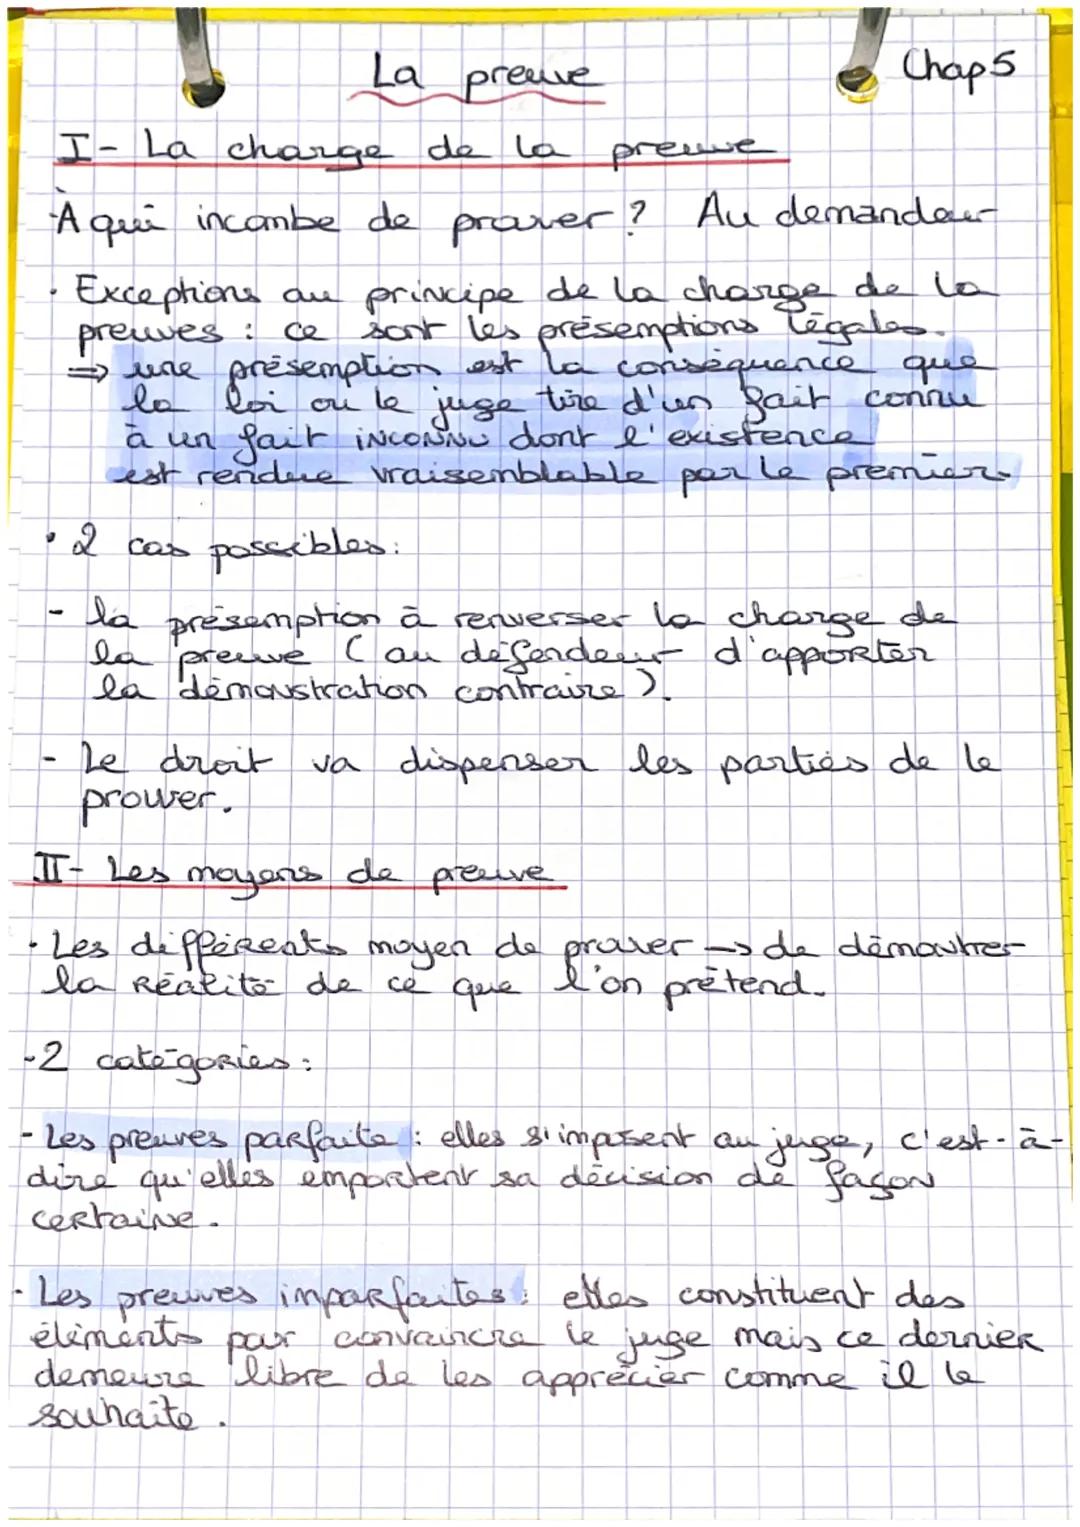 La preuve
Chap 5
I- La charge de la preuve
- À qui incombe de prouver ? Au demandeur
• Exceptions au principe de la charge de la
preuves : ce sont les présemptions légales.
⇒ une présemption est la conséquence que
la loi ou le juge tire d'un fait connu
à un fait inconnu dont l'existence
est rendue vraisemblable par le premier.
• 2 cas possibles :
- la présemption à renverser la charge de
la preuve ( au défendeur d'apporter
la démonstration contraire ).
- Le droit va dispenser les parties de le
prouver.
II- Les moyens de preuve
• Les différents moyen de prouver → de démontrer
la réalité de ce que l'on prétend.
- 2 catégories :
- Les preuves parfaite : elles s'imposent au juge, c'est-à-
dire qu'elles emportent sa décision de façon
certaine.
- Les preuves imparfaites : elles constituent des
éléments pour convaincre le juge mais ce dernier
demeure libre de les apprécier comme il le
souhaite.